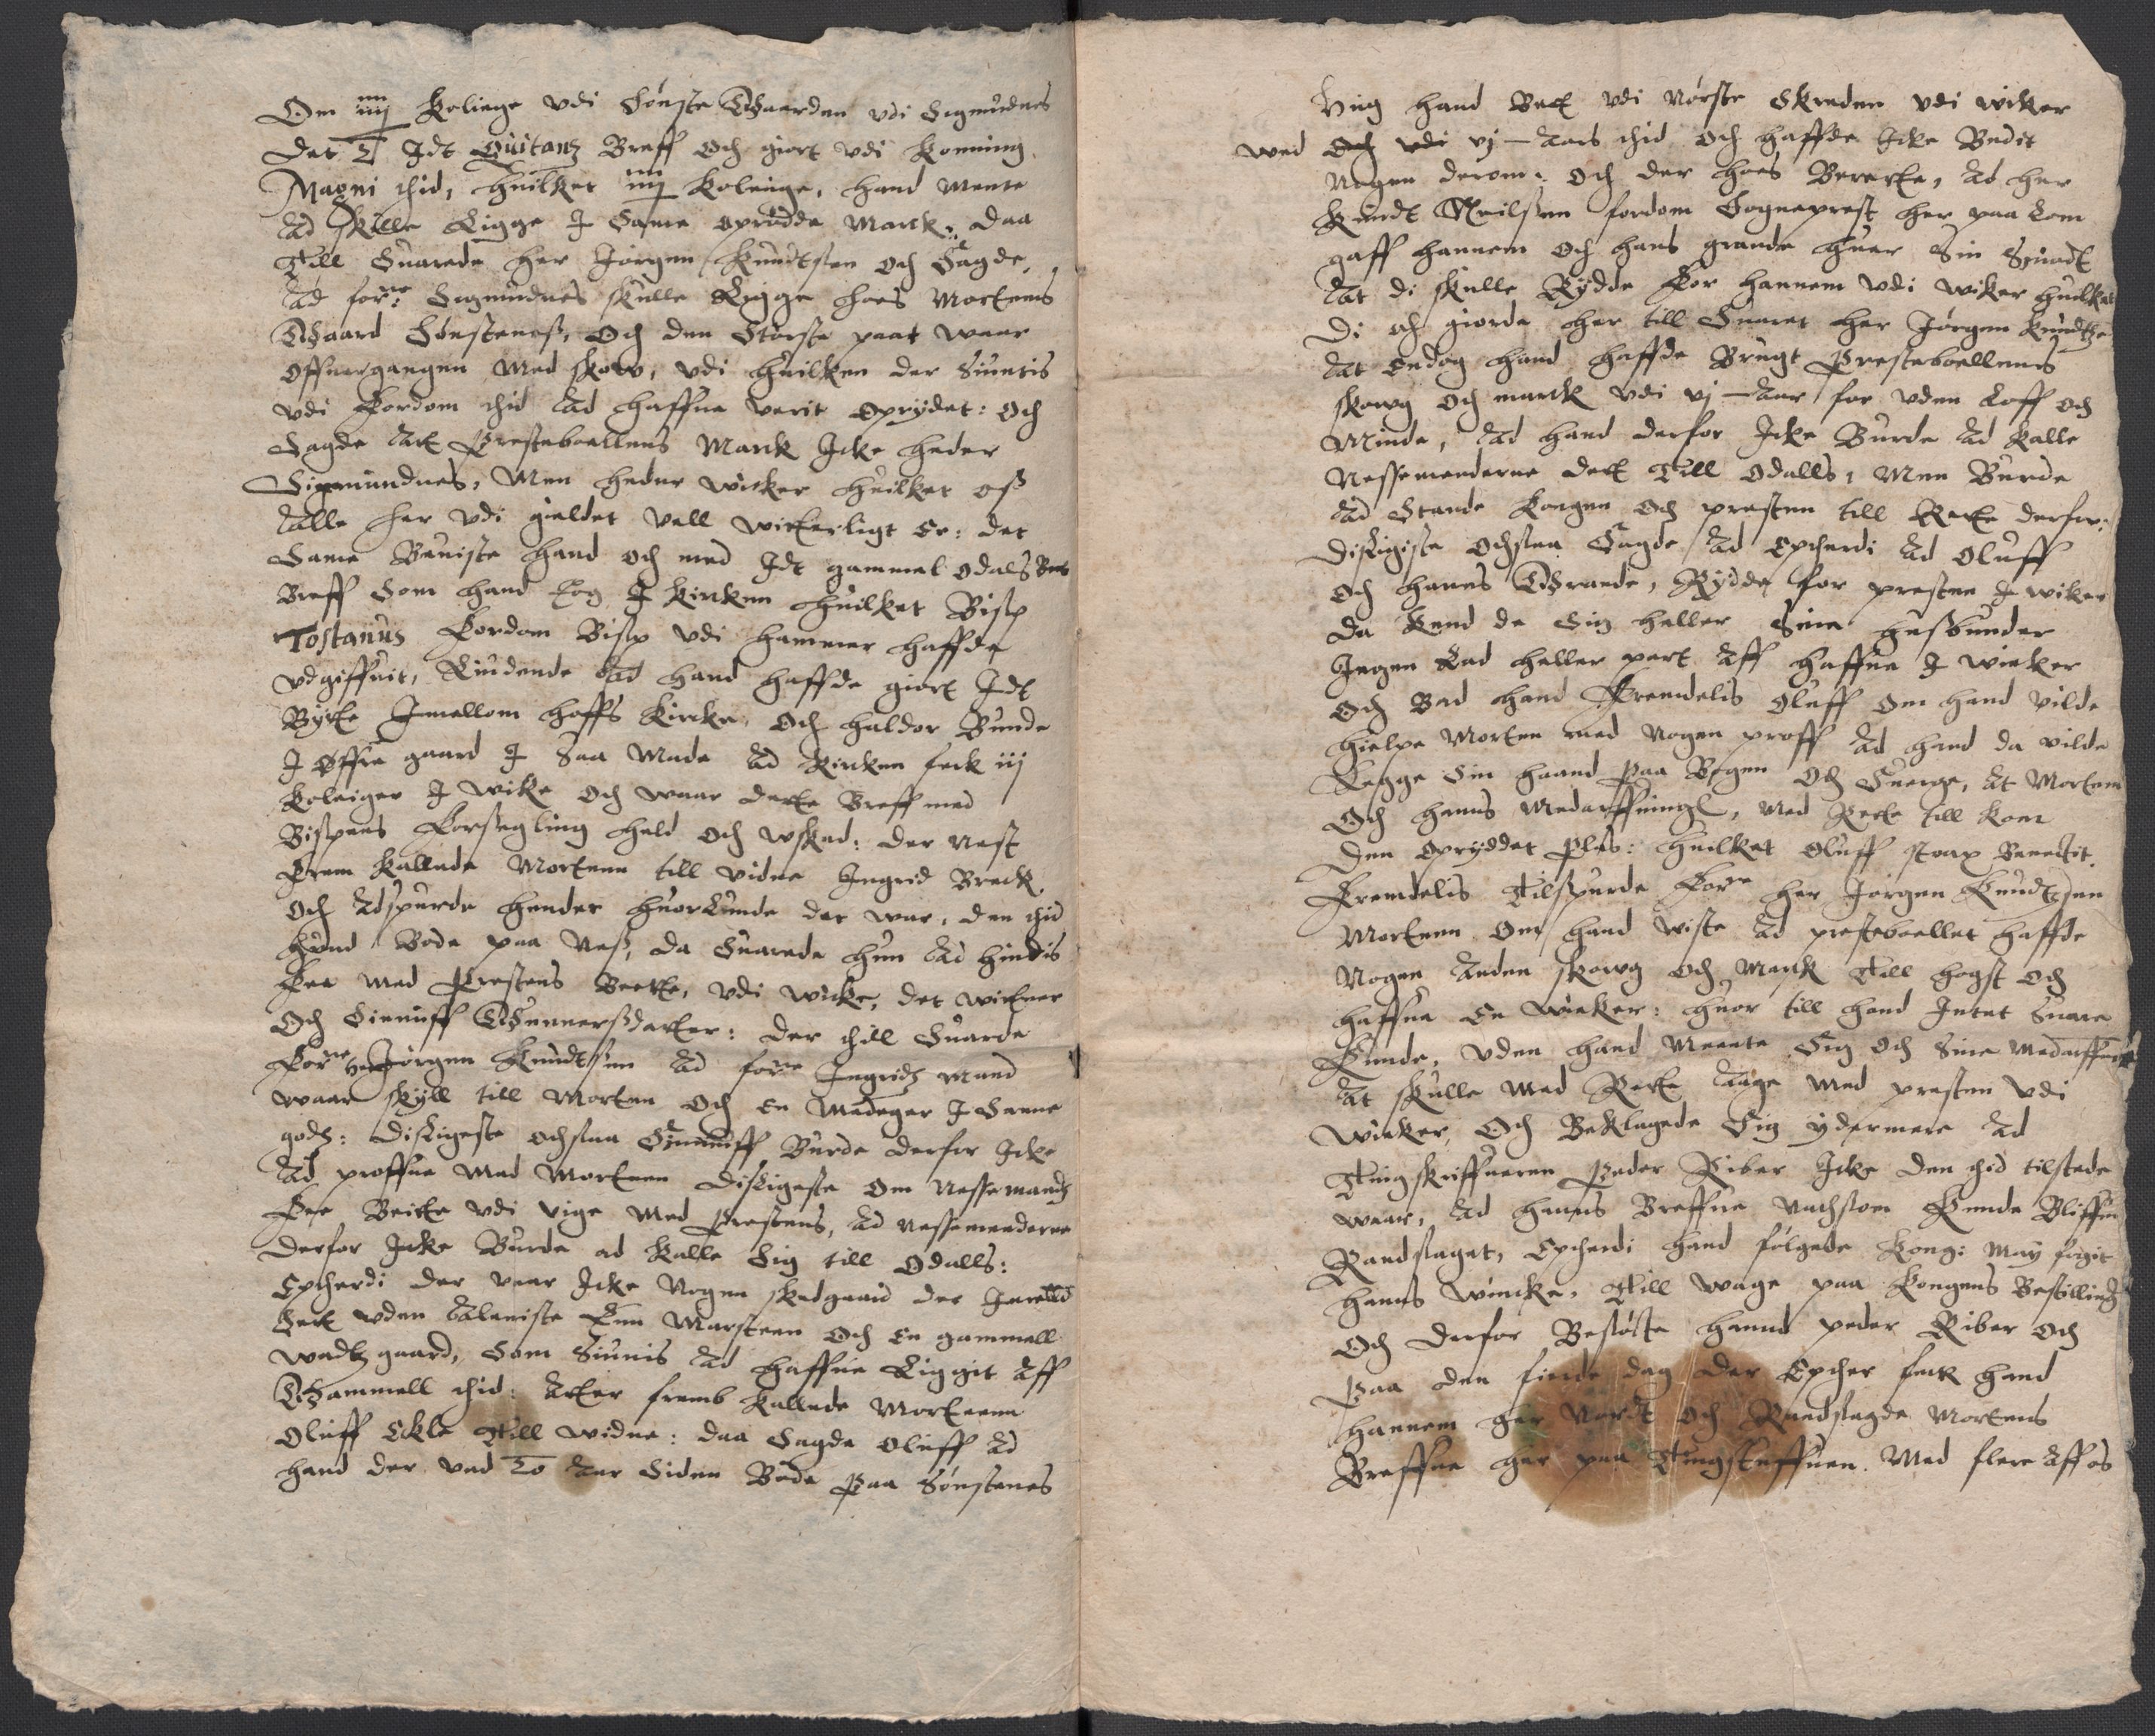 Om iiij Koleige vdi Sønste Gaarden vdi Sigmudnes
Det Idt Quitantz Breff Och giort vdi Konning
Magni thid, huilket iiij Koleige, hand Mente
Ad skulle Ligge I Same oprudde Marck: Daa
Till Suarede her Jørgen Knudtssen Och Sagde,
Ad forne: Sigmudnes skulle Ligge hoes Mortens
Gaard Sønstenes, Och den Største part waar
Offuergangen Med skow, vdi huilken der Siuntis
vdi Fordom thid Ad haffue verit Oprydet: Och
Sagde Att Presteboellens Marck Icke heder
Sigmundnes, Men heder wicker huilket oss
Alle her vdi gieldet vell witterligt Er: det
Same Beuiste hand och med Idt gammel Odals
Breff Som hand tog I Kircken huilket Bisp
Tostanus Fordom Bisp vdi hammer haffde
vdgiffuit, Liudende Ad hand haffde giort Idt
Bytte Imellom hoffs Kircke, Och haldor Bunde
I Øffre gaard I Saa Made Ad Kircken feck iij
Koleiger I wike Och waar dette Breff med
Bispens Forsegling held Och wskad: der Nest
Frem Kallede Mortenn till vidne Ingrid Breck
Och Adspurde hender huorlunde det war, den thid
hund Bode paa Nes, da Suarede hun Ad hindis
Fee med Prestens Beette, vdi wicke, det wittner
Och Sinnuff Gunnersdatter: Der thill Suarde
Forne her Jørgen Knudtssen Ad forne Ingridz Mand
waar skyll till Morten Och En Medeger I Samme
godz: Disligeste Ochsaa Sinnuff Burde derfor Icke
Ad proffue Med Mortenn Disligeste Om Nessemendz
Fee Beitte vdi vige Med Prestens, Ad Nessemenderne
Derfor Icke Burde ad Kalle Sig till Odalls:
Epcherdi der vaar Icke Nogen skedgaard der Imellom
Sett vden Aleniste Enn Marsteen Och En gammell
wedtz gaard, Som Siunis Ad haffue Liggit Aff
Gammell thid: Atter fremb Kallede Mortenn
Oluff Eckle Till widne: daa Sagde Oluff Ad
hand der ved To Aar Siden Bode paa Sønstenes
Hug hand Vett vdi Nørste Skreden vdi wiker
wed vj Aars thid Och haffde Icke Bedit
Nogen derom: Och der hoes Berette, Ad her
Knudt Neilssen fordom Sogneprest her paa Tom
gaff hannem Och hans grande huer Sin
At di skulle Rydde For hannem vdi wiker huilket
Di och giorde her till Suaret her Jørgen Knudtze
At Endog hand haffde Brugt Presteboellens
skowg Och marck vdi vj Aar for vden Loff och
Minde, Ad hand derfor Icke Burde Ad Kalle
Nessemenderne dett Till Odalls, Men Burde
Ad Stande Kongen Och presten till Rette derfor:
Disligiste Ochsaa Sagde Ad Epcherdi Ad Oluff
Och hanns Grande, Rydde for presten I wiker
Da Kend de Sig heller Sine husbunder
Ingen Lod heller part Aff haffue I wieker
Och Bad hand Fremdelis Oluff Om hand vilde
hielpe Morten med Nogen proff Ad hand da vilde
Legge Sin haand paa Bogen Och Suerge, At Morten
Och hanns Medarffuinge, Med Rette till Kom
Den Opryddet Plas: huilket Oluff strax Benectit.
Fremdelis Tilspurde Forne her Jørgen Knudtssen
Mortenn Om hand wiste Ad presteboellet haffde
Nogen Anden skowg Och Marck Till hogst Och
haffue En wieker: huor till hand Intet Suare
Kunde, vden hand Meente Sig Och Sine Medarffuing
At skulle Med Rette Aage Med presten vdi
wieker, Och Beklagede Sig ydermere Ad
Tingskriffueren Peder Riber Icke den thid tilstede
waar, Ad hanns Breffue Kunde Bliffue
Randsaget, Epcherdi hand følgede Kong: May fogit
hanns wincke, Till wage paa Kongens Bestilling
Och derfor Besøgte hannd peder Riber Och
Paa den fierde dag Der Epther feck hand
hannem her Nordt Och Randsagde Mortens
Breffue her paa Tingstuffuen. Med flere Aff os